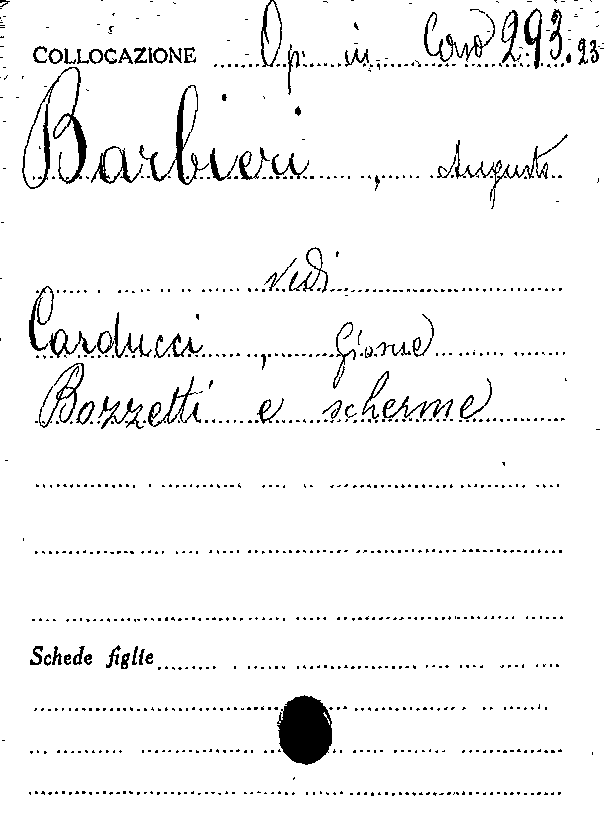 COLLOCAZIONE Op. in Corso 293.23
Barbieri, Augusto
vedi
Carducci, Giosue
Bozzetti e scherme
Schede figlie